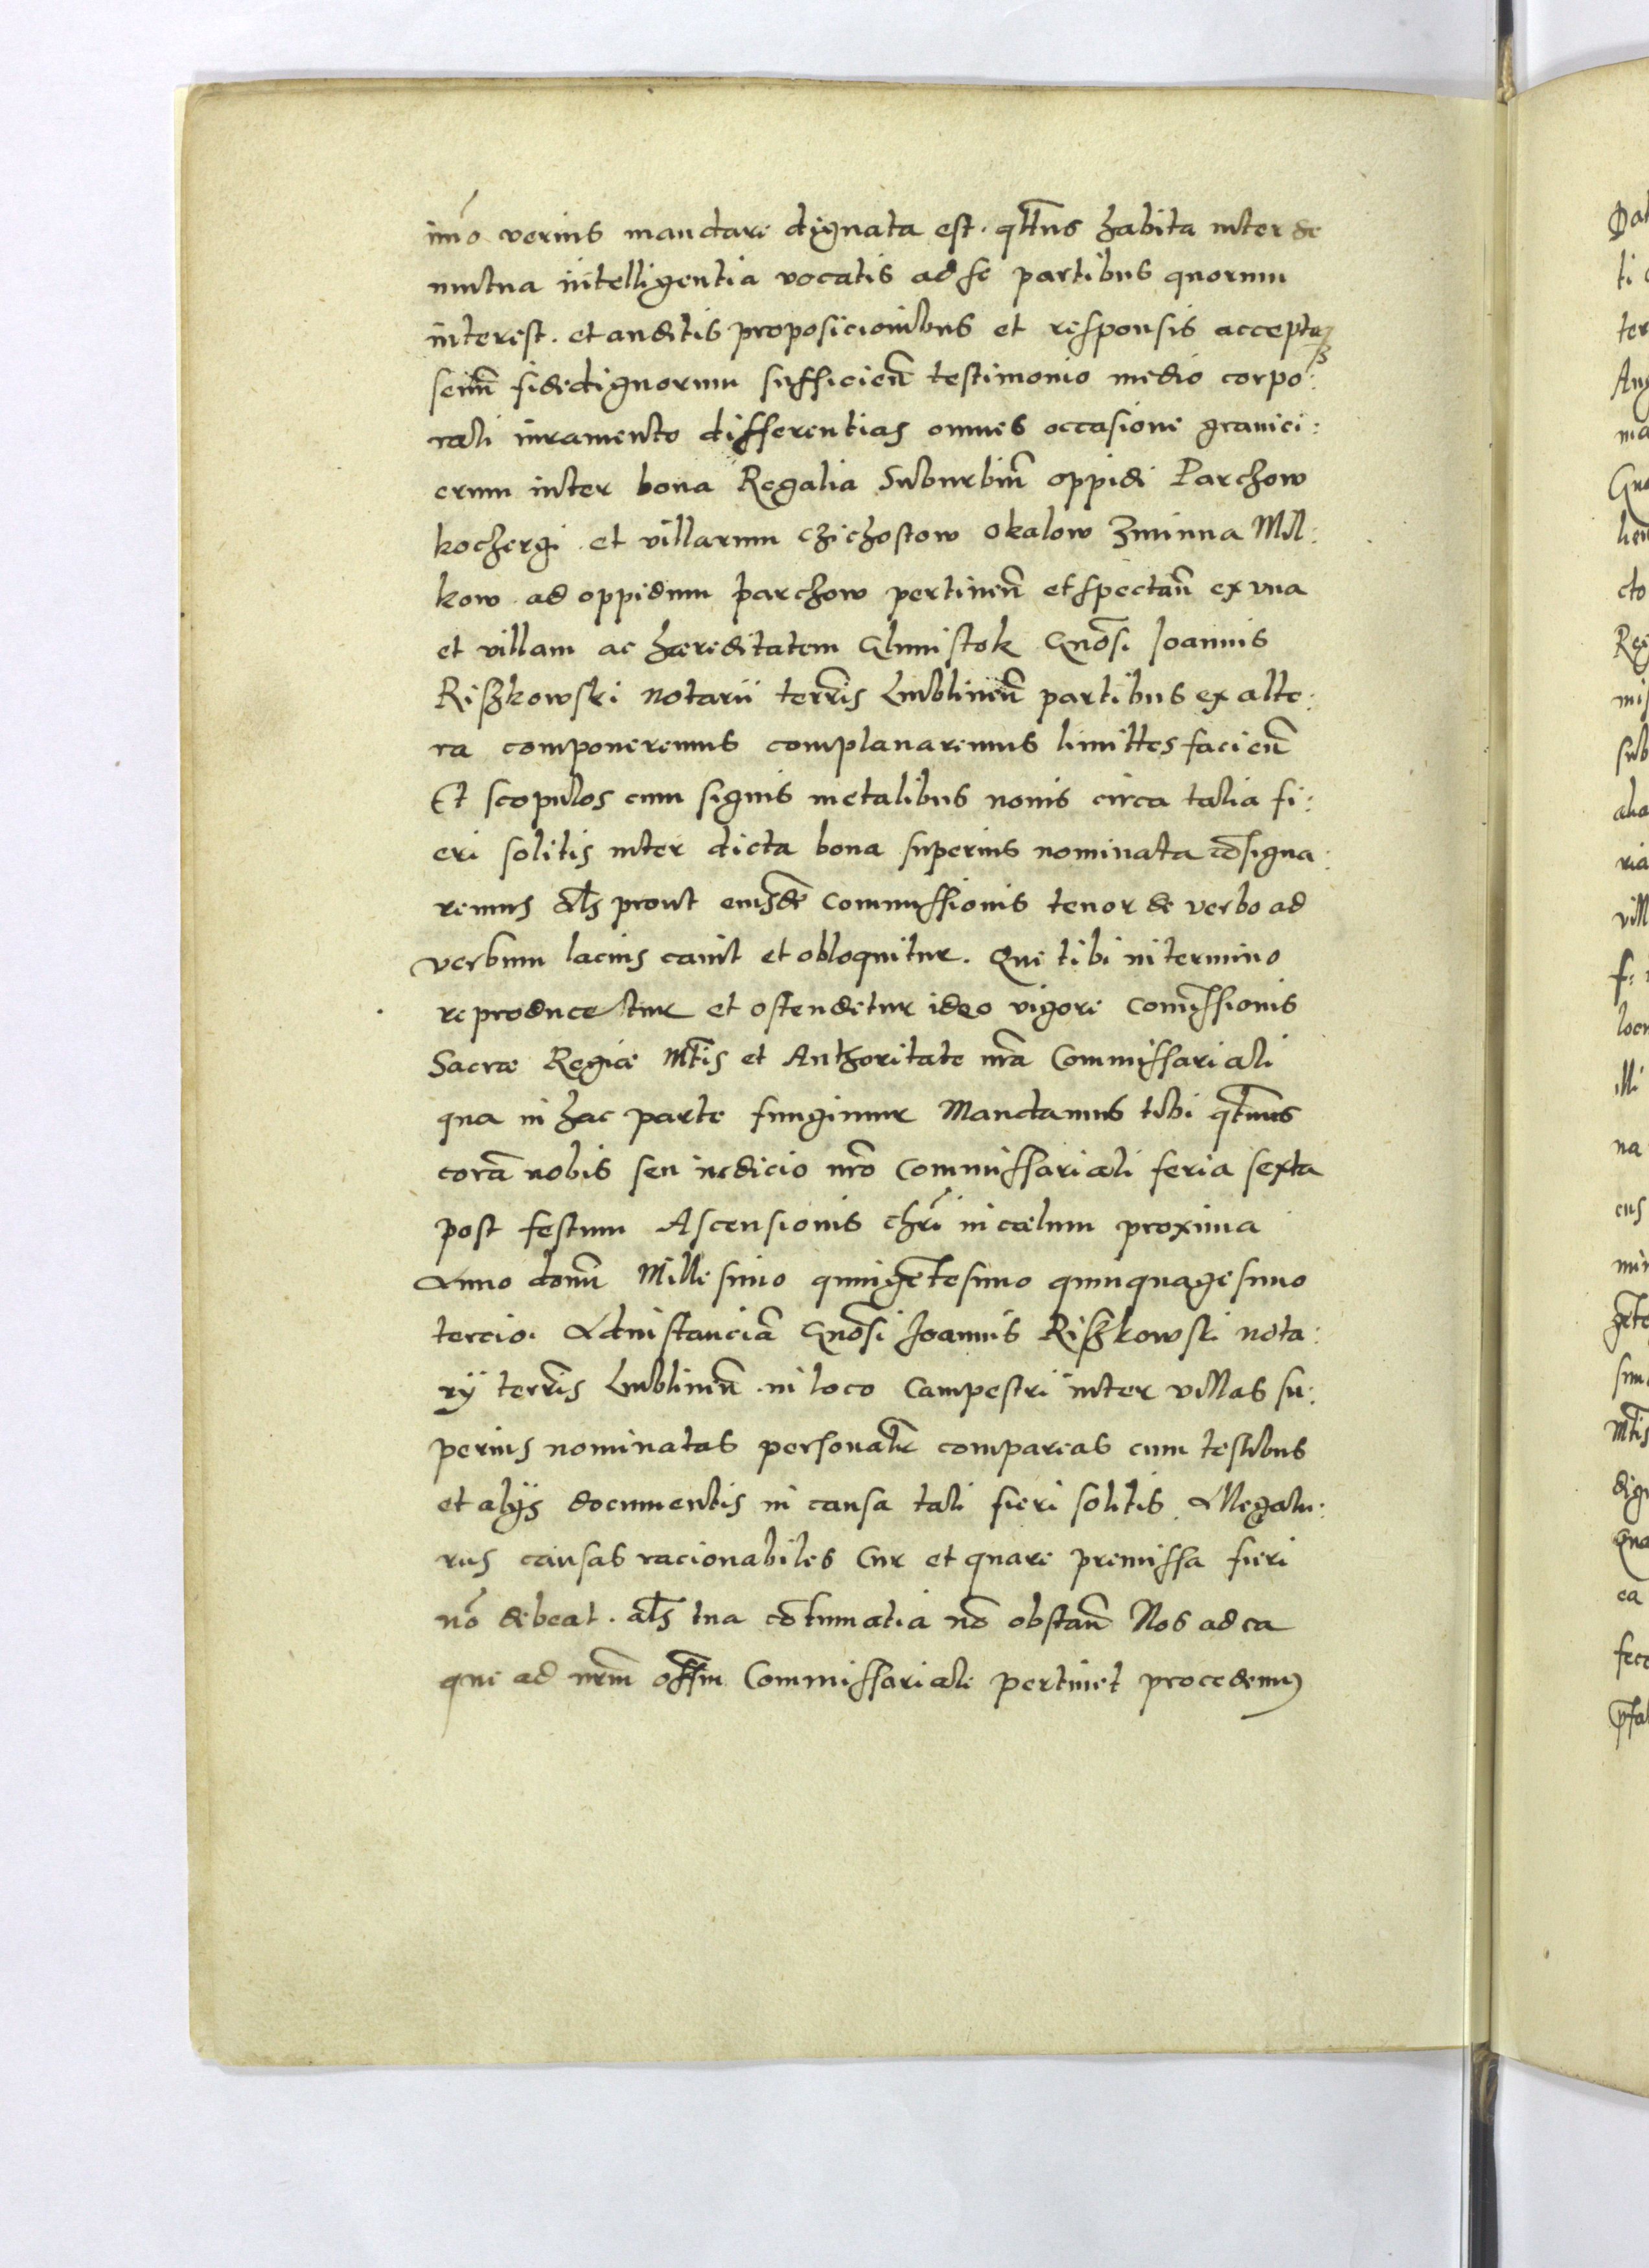 imo verius mandare dignata est. qttnus habita inter se
mutua intelligentia vocatis ad se partibus quorum
interest. et auditis proposicionibus et responsis acceptaq3
senũ fidedignorum sufficieñ testimonio medio corpo:
rali iuramento differentias omnes occasione granici:
erum inter bona Regalia Suburbiũ oppidi Parchow
kochergi et villarum Chichostow Okalow Zminna Mil:
kow ad oppidum parchow pertineñ et spectañ ex vna
et villam ac hæreditatem Glunistok Gnosi Joannis
Riszkowski Notarii terris Lublineñ partibus ex alte:
ra componeremus complanaremus limittes facieñ
Et scopulos cum signis metalibus nouis circa talia fi:
eri solitis inter dicta bona superius nominata cõsigna:
remus als prout eiusdẽ commissionis tenor de verbo ad
verbum lacius canit et obloquitur. Que tibi in termino
reproducetur et ostendetur ideo vigore comissionis
Sacræ Regiæ Mtis et Authoritate nra Commissariali
qua in hac parte fungimur Mandamus tibi qtnus
corã nobis seu iudicio nro Commissariali feria sexta
post festum Ascensionis chri in cælum proxima
Anno domi Millesimo quingẽtesimo quinquagesimo
tercio. Ad instanciã Gnosi Joannis Riszkowski nota:
rij terris Lublineñ in loco Campestri inter villas su:
perius nominatas personalr compareas cum testibus
et alijs documentis in causa tali fieri solitis Allegatu:
rus causas racionabiles Cur et quare premissa fieri
nõ debeat. als tua cõtumatia nõ obstañ Nos ad ea
que ad nrm offm Commissariale pertinet procedemus